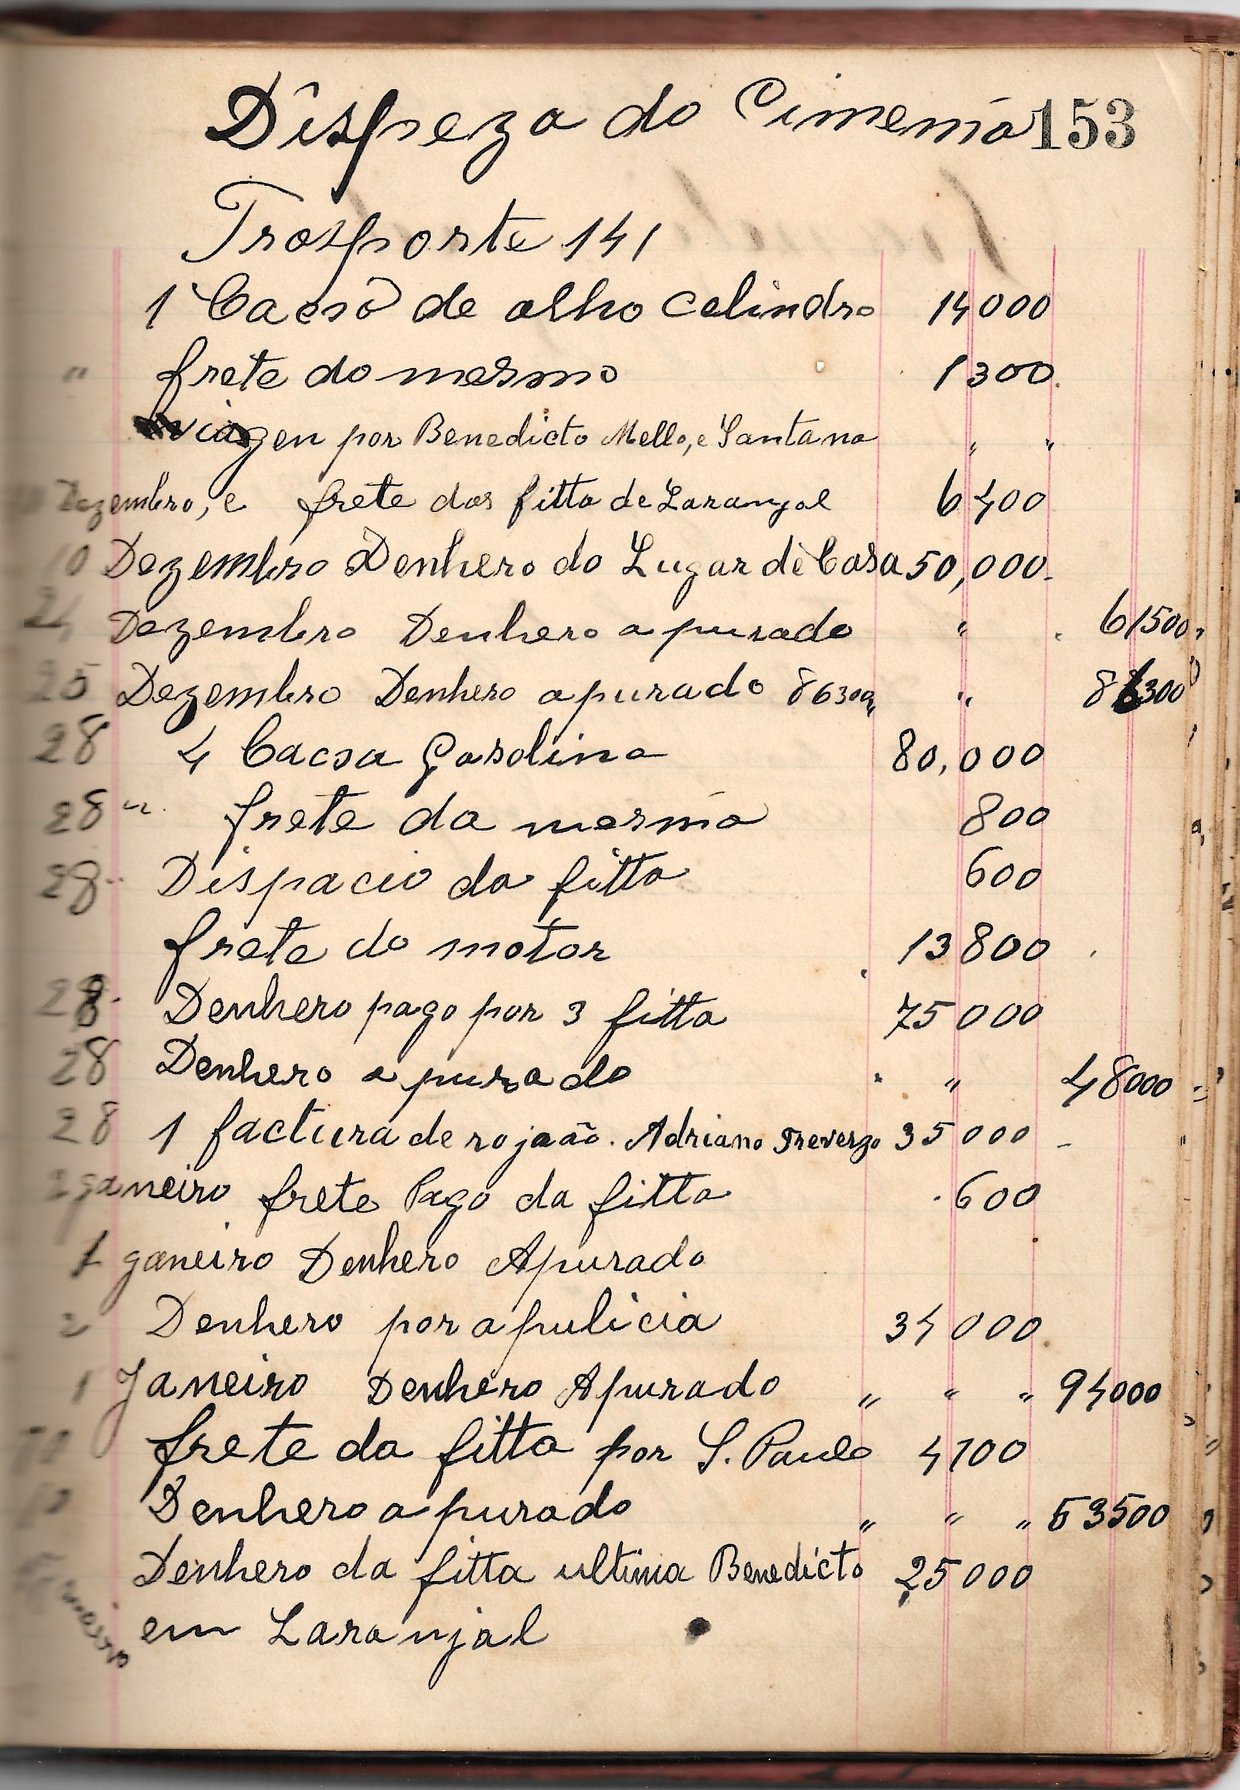 Dispeza do Cimema 153
Trasporte 141
1 Cacsô de olho Celindro 14000
" frete do mesmo 1300
viagen por Benedicto Mello, e Santana " "
Dezembro, e frete das fitta de Laranjal 6400
10 Dezembro Denhero do Lugar de Casa 50,000
21 Dezembro Denhero apurado " 61500
25 Dezembro Denhero apurado 86300 " 86300
28 4 Cacsa Gasolina 80,000
28 " frete da mesma 800
28 Dispacio da fitta 600
frete do motor 13800
28 Denhero pago por 3 fitta 75000
28 Denhero apurado " 48000
28 1 factura de rojaão. Adriano Treverzo 35000
2 ganeiro frete Pago da fitta 600
1 ganeiro Denhero Apurado
2 Denhero por a pulicia 34000
1 Janeiro Denhero Apurado " " " 94000
frete da fitta por S. Paulo 4700
Denhero apurado " " " 53500
Denhero da fitta ultima Benedicto 25000
em Laranjal